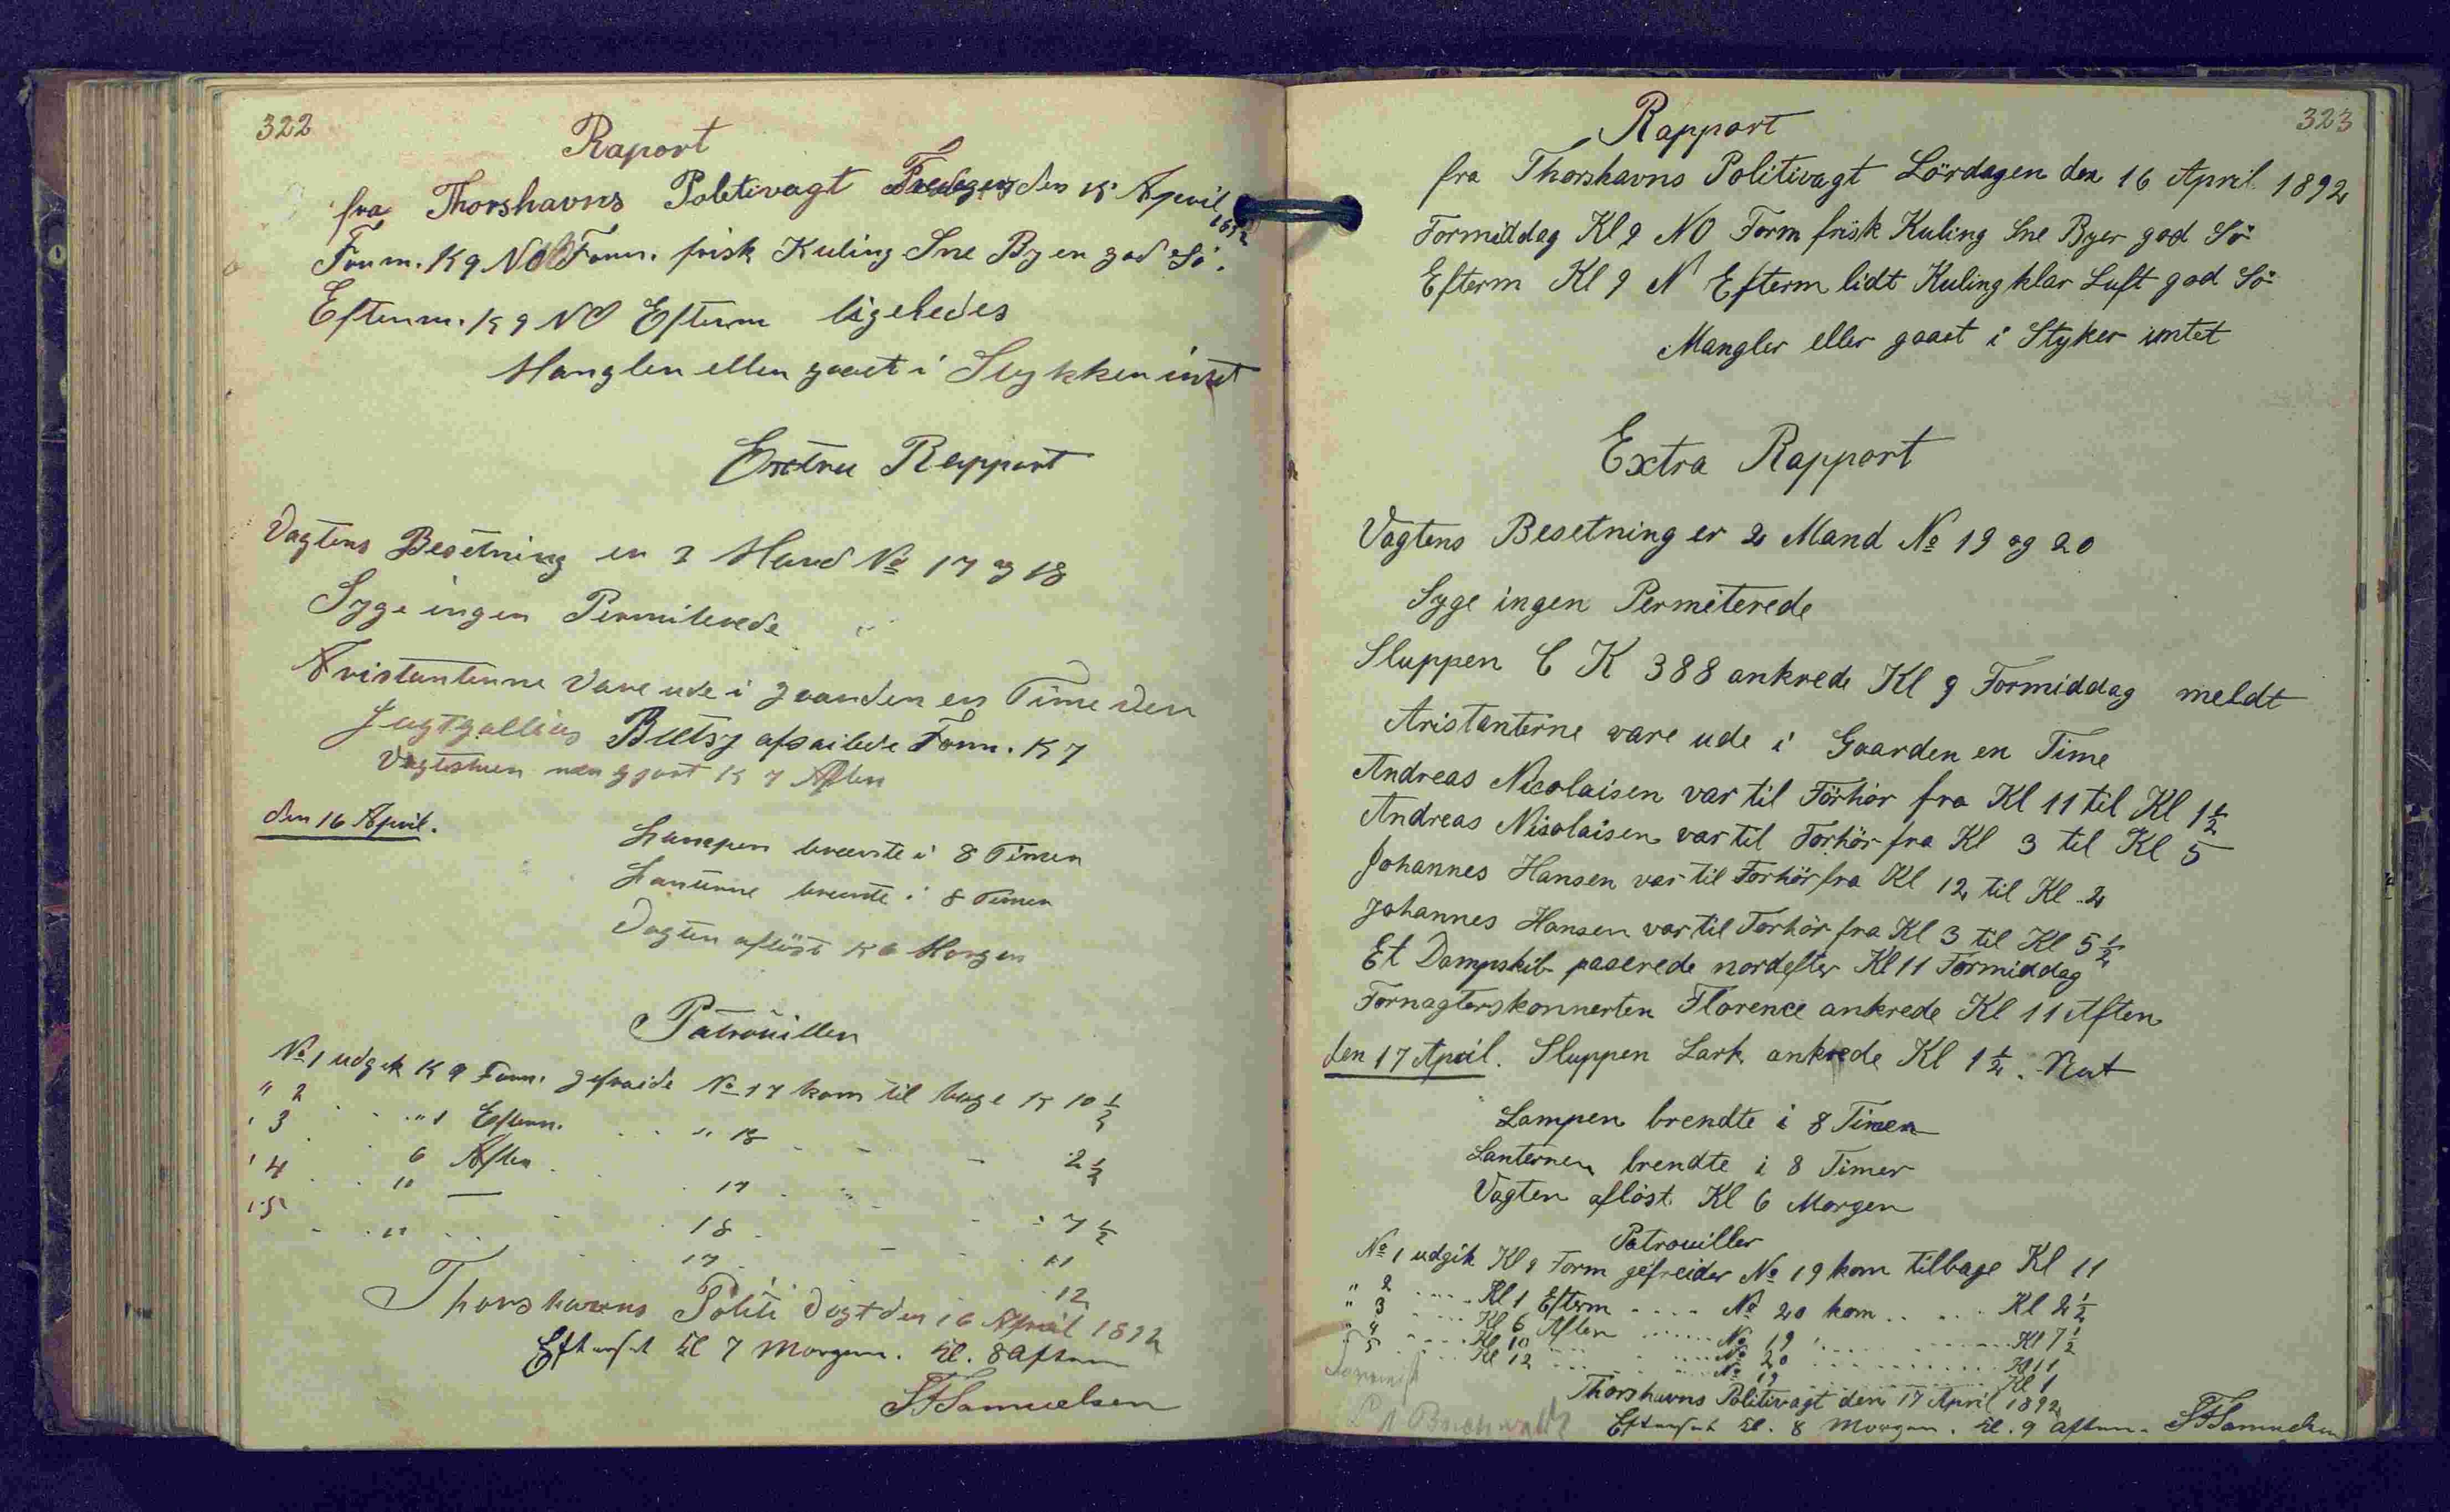 322
Raport
fra Thorshavns Politivagt Fredagen den 15 April 1892
Form. K 9 NO Form. frisk Kuling Sne Byer god Sö.
Efterm. K 9 NO Efterm ligeledes
Mangler eller gaaet i Stykker intet
Extra Rapport
Vagtens Besetning er 2 Mand No 17 og 18
Syge ingen Permiterede
Aristanterne vare ude i gaarden en Time den
Jagtgallias Betsy afsailede Form. K 7
Vagtstuen rengjort K 7 Aften
den 16 April.
Lampen brænte i 8 Timer
Lanterne brænte i 8 Timer
Vagten aflöst K 6 Morgen
Patrouiller
No 1 udgik K 9 Form. gefraide No 17 kom til bage K 10 1/2
" 2 " 1 Efterm. " 18 2 1/2
" 3 6 Aften 17 7 1/2
" 4 10 — 18 11
" 5 " 17 12
Thorshavns Politi Vagt den 16 April 1892
Efterset Kl 7 Morgen. Kl. 8 Aften
Samuelsen
323
Rapport
fra Thorshavns Politivagt Lördagen den 16 April 1892
Formiddag Kl 9 NO Form frisk Kuling Sne Byer god Sö
Efterm Kl 9 N Efterm lidt Kuling klar Luft god Sö
Mangler eller gaaet i Styker intet
Extra Rapport
Vagtens Besetning er 2 Mand No 19 og 20
Syge ingen Permeterede
Sluppen C K 388 ankrede Kl 9 Formiddag meldt
Aristanterne vare ude i Gaarden en Time
Andreas Nicolaisen var til Forhör fra Kl 11 til Kl 1 1/2
Andreas Nisolaisen var til Forhör fra Kl 3 til Kl 5
Johannes Hansen var til Forhör fra Kl 12 til Kl 2
Johannes Hansen var til Forhör fra Kl 3 til Kl 5 1/2
Et Dampskib paserede nordefter Kl 11 Formiddag
Fornagterskonnerten Florence ankrede Kl 11 Aften
den 17 April. Sluppen Lark ankrede Kl 1 1/2 Nat
Lampen brendte i 8 Timer
Lanternen brendte i 8 Timer
Vagten aflöst Kl 6 Morgen
Patrouiller
No 1 udgik Kl 9 Form gefreider No 19 kom tilbage Kl 11
" 2 Kl 1 Efterm No 20 kom Kl 2 1/2
" 3 Kl 6 Aften No 19 Kl 7 1/2
" 4 Kl 10 No 20 Kl 11
" 5 Kl 12 No 19 Kl 1
Thorshavns Politivagt den 17 April 1892
Efterset Kl. 8 Morgen. Kl. 9 Aften. Samuelsen